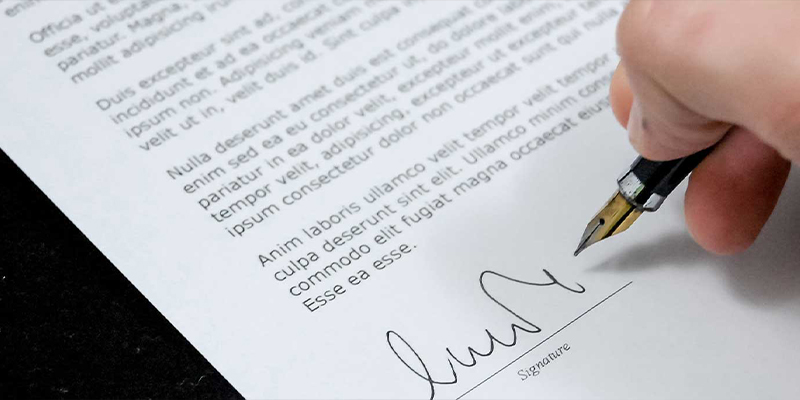 enim
Officia ut
esse, voluptate
pariatur. Magna,
mollit adipisicing irure
Duis excepteur sint ad, con
incididunt et ad ea occaecat
ipsum non. Adipisicing veniam
velit ut in, velit duis id. Sint culpa
Nulla deserunt amet duis est consequat
enim sed ea eu consectetur ut, do dolore
pariatur in ea dolor velit, excepteur mollit enim,
tempor velit, adipisicing, excepteur ut excepteur
ipsum consectetur dolor non occaecat sunt qui nulla
Anim laboris ullamco velit tempor velit tempor
culpa deserunt sint elit. Ullamco minim
commodo elit fugiat magna occaecat
Esse ea esse.
Signature